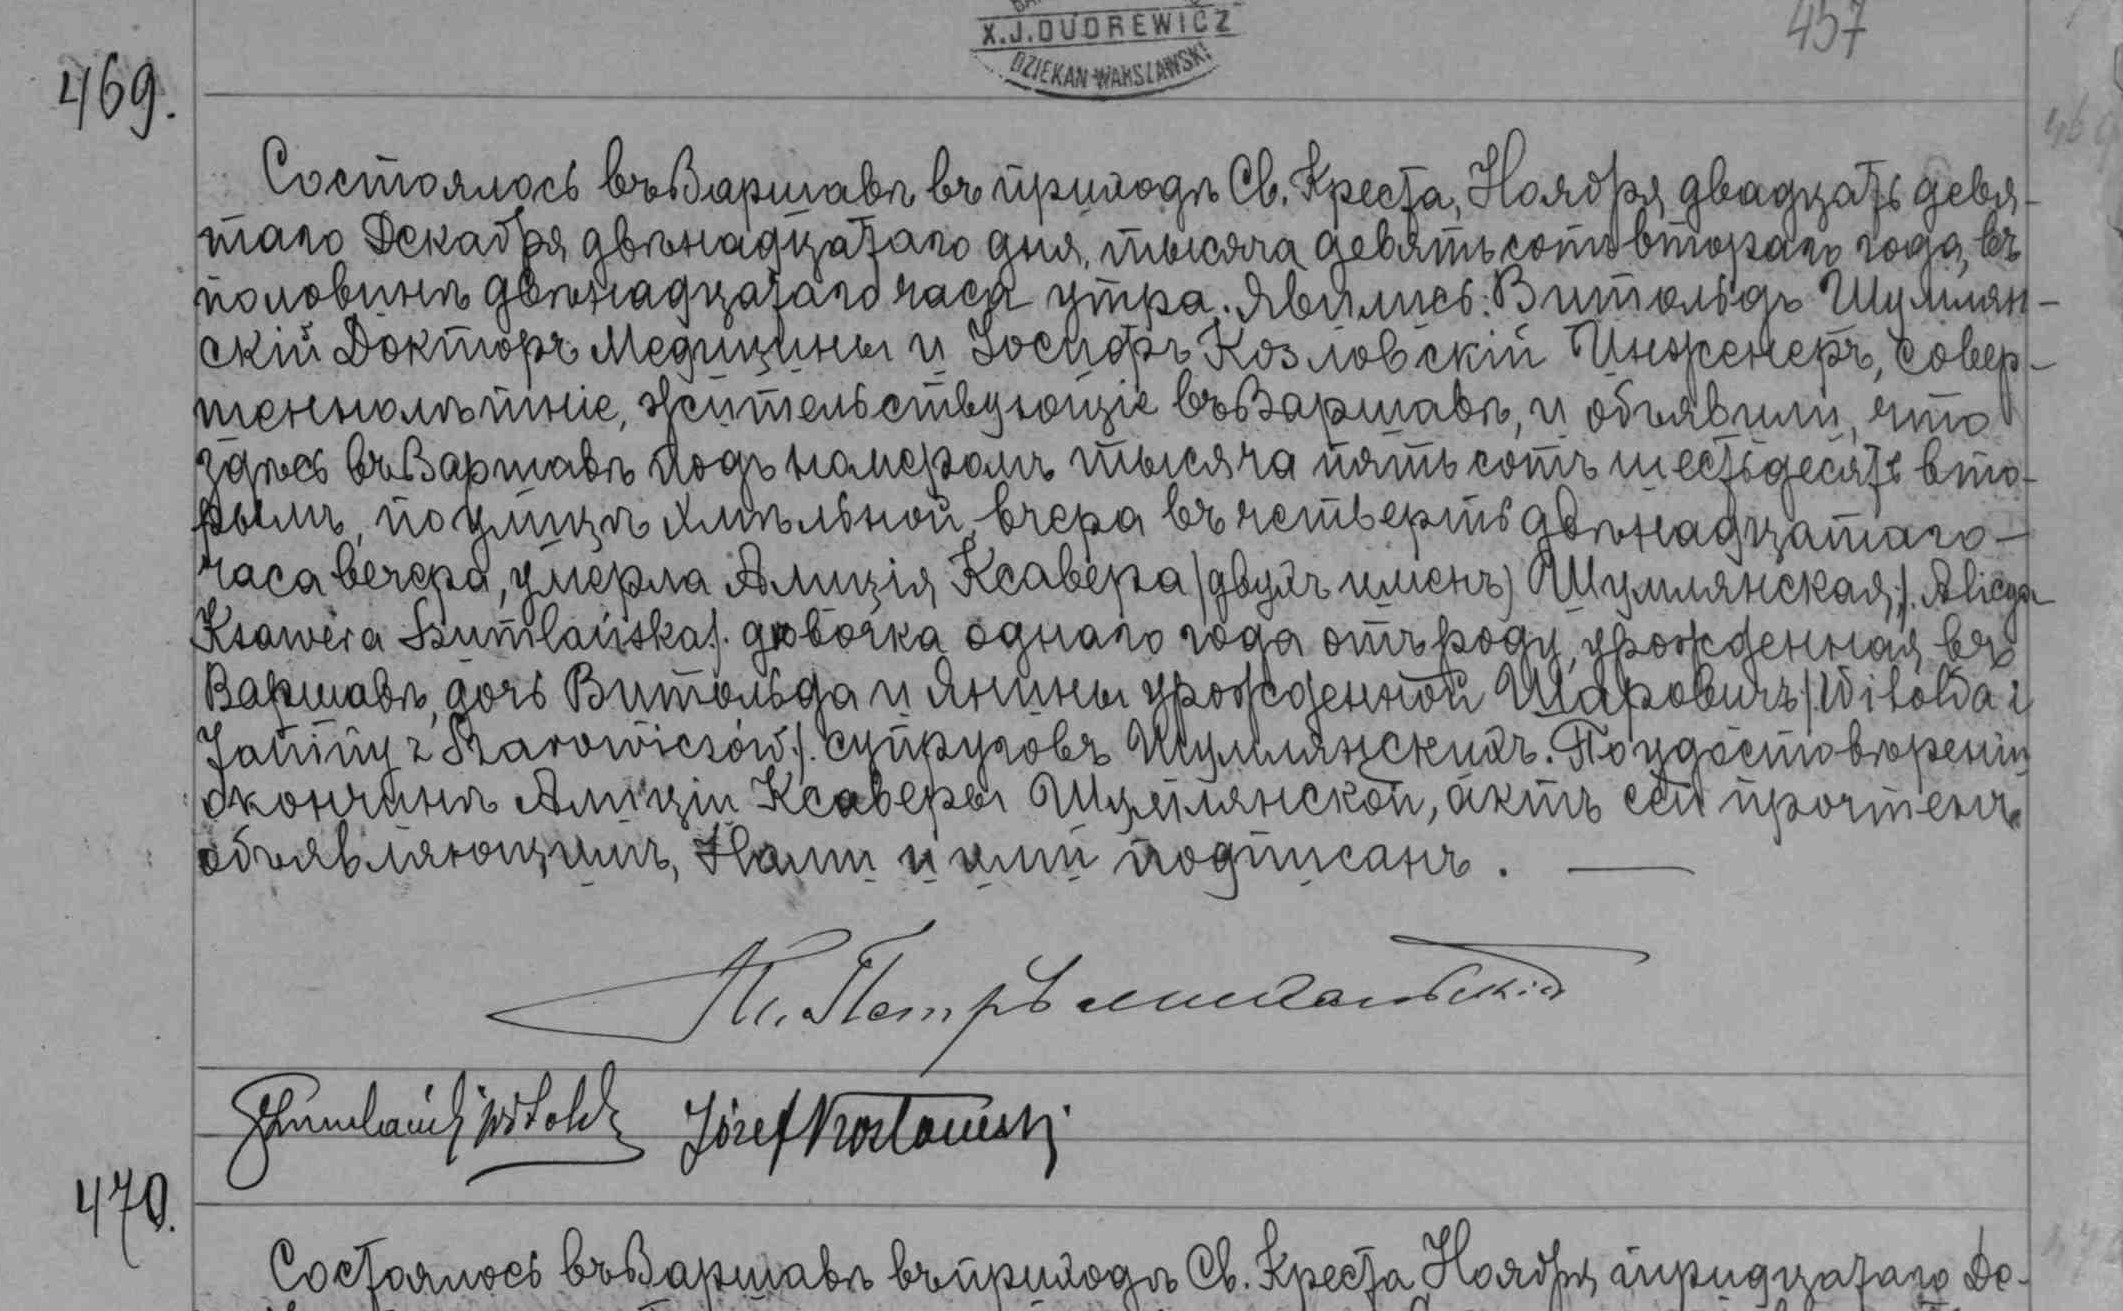 X.J.DUDREWICZ
DZIEKAN WARSZAWSKI
457
469.
Состоялось въ Варшавѣ въ приходѣ Св. Креста, Ноября двадцать девя-
таго Декабря двѣнадцатаго дня, тысяча девятьсотъ втораго года, въ
половинѣ двѣнадцатаго часа утра. Явились: Витольдъ Шумлян-
скій Докторъ Медицины и Іосифъ Козловскій Инженеръ, совер-
шеннолѣтніе, жительствующіе въ Варшавѣ, и объявили, что
здѣсь въ Варшавѣ подъ номеромъ тысяча пятьсотъ шестьдесятъ вто-
рымъ, по улицѣ Хмѣльной, вчера въ четверть двѣнадцатаго —
часа вечера, умерла Алиція Ксавера (двухъ именъ) Шумлянская, /. Alicya
Ksawera Szumlańska /. дѣвочка одного года отъ роду, урожденная въ
Варшавѣ, дочь Витольда и Янины урожденной Шаровичъ /. Witolda i
Janiny z Szarowiczów /. супруговъ Шумлянскихъ. По удостовѣреніи
окончинѣ Алиціи Ксаверы Шумлянской, актъ сей прочтенъ
объявляющимъ, Нами и ими подписанъ. —
Szumlański Witold Józef Kozłowski
470.
Состоялось въ Варшавѣ въ приходѣ Св. Креста Ноября тридцатаго Де-